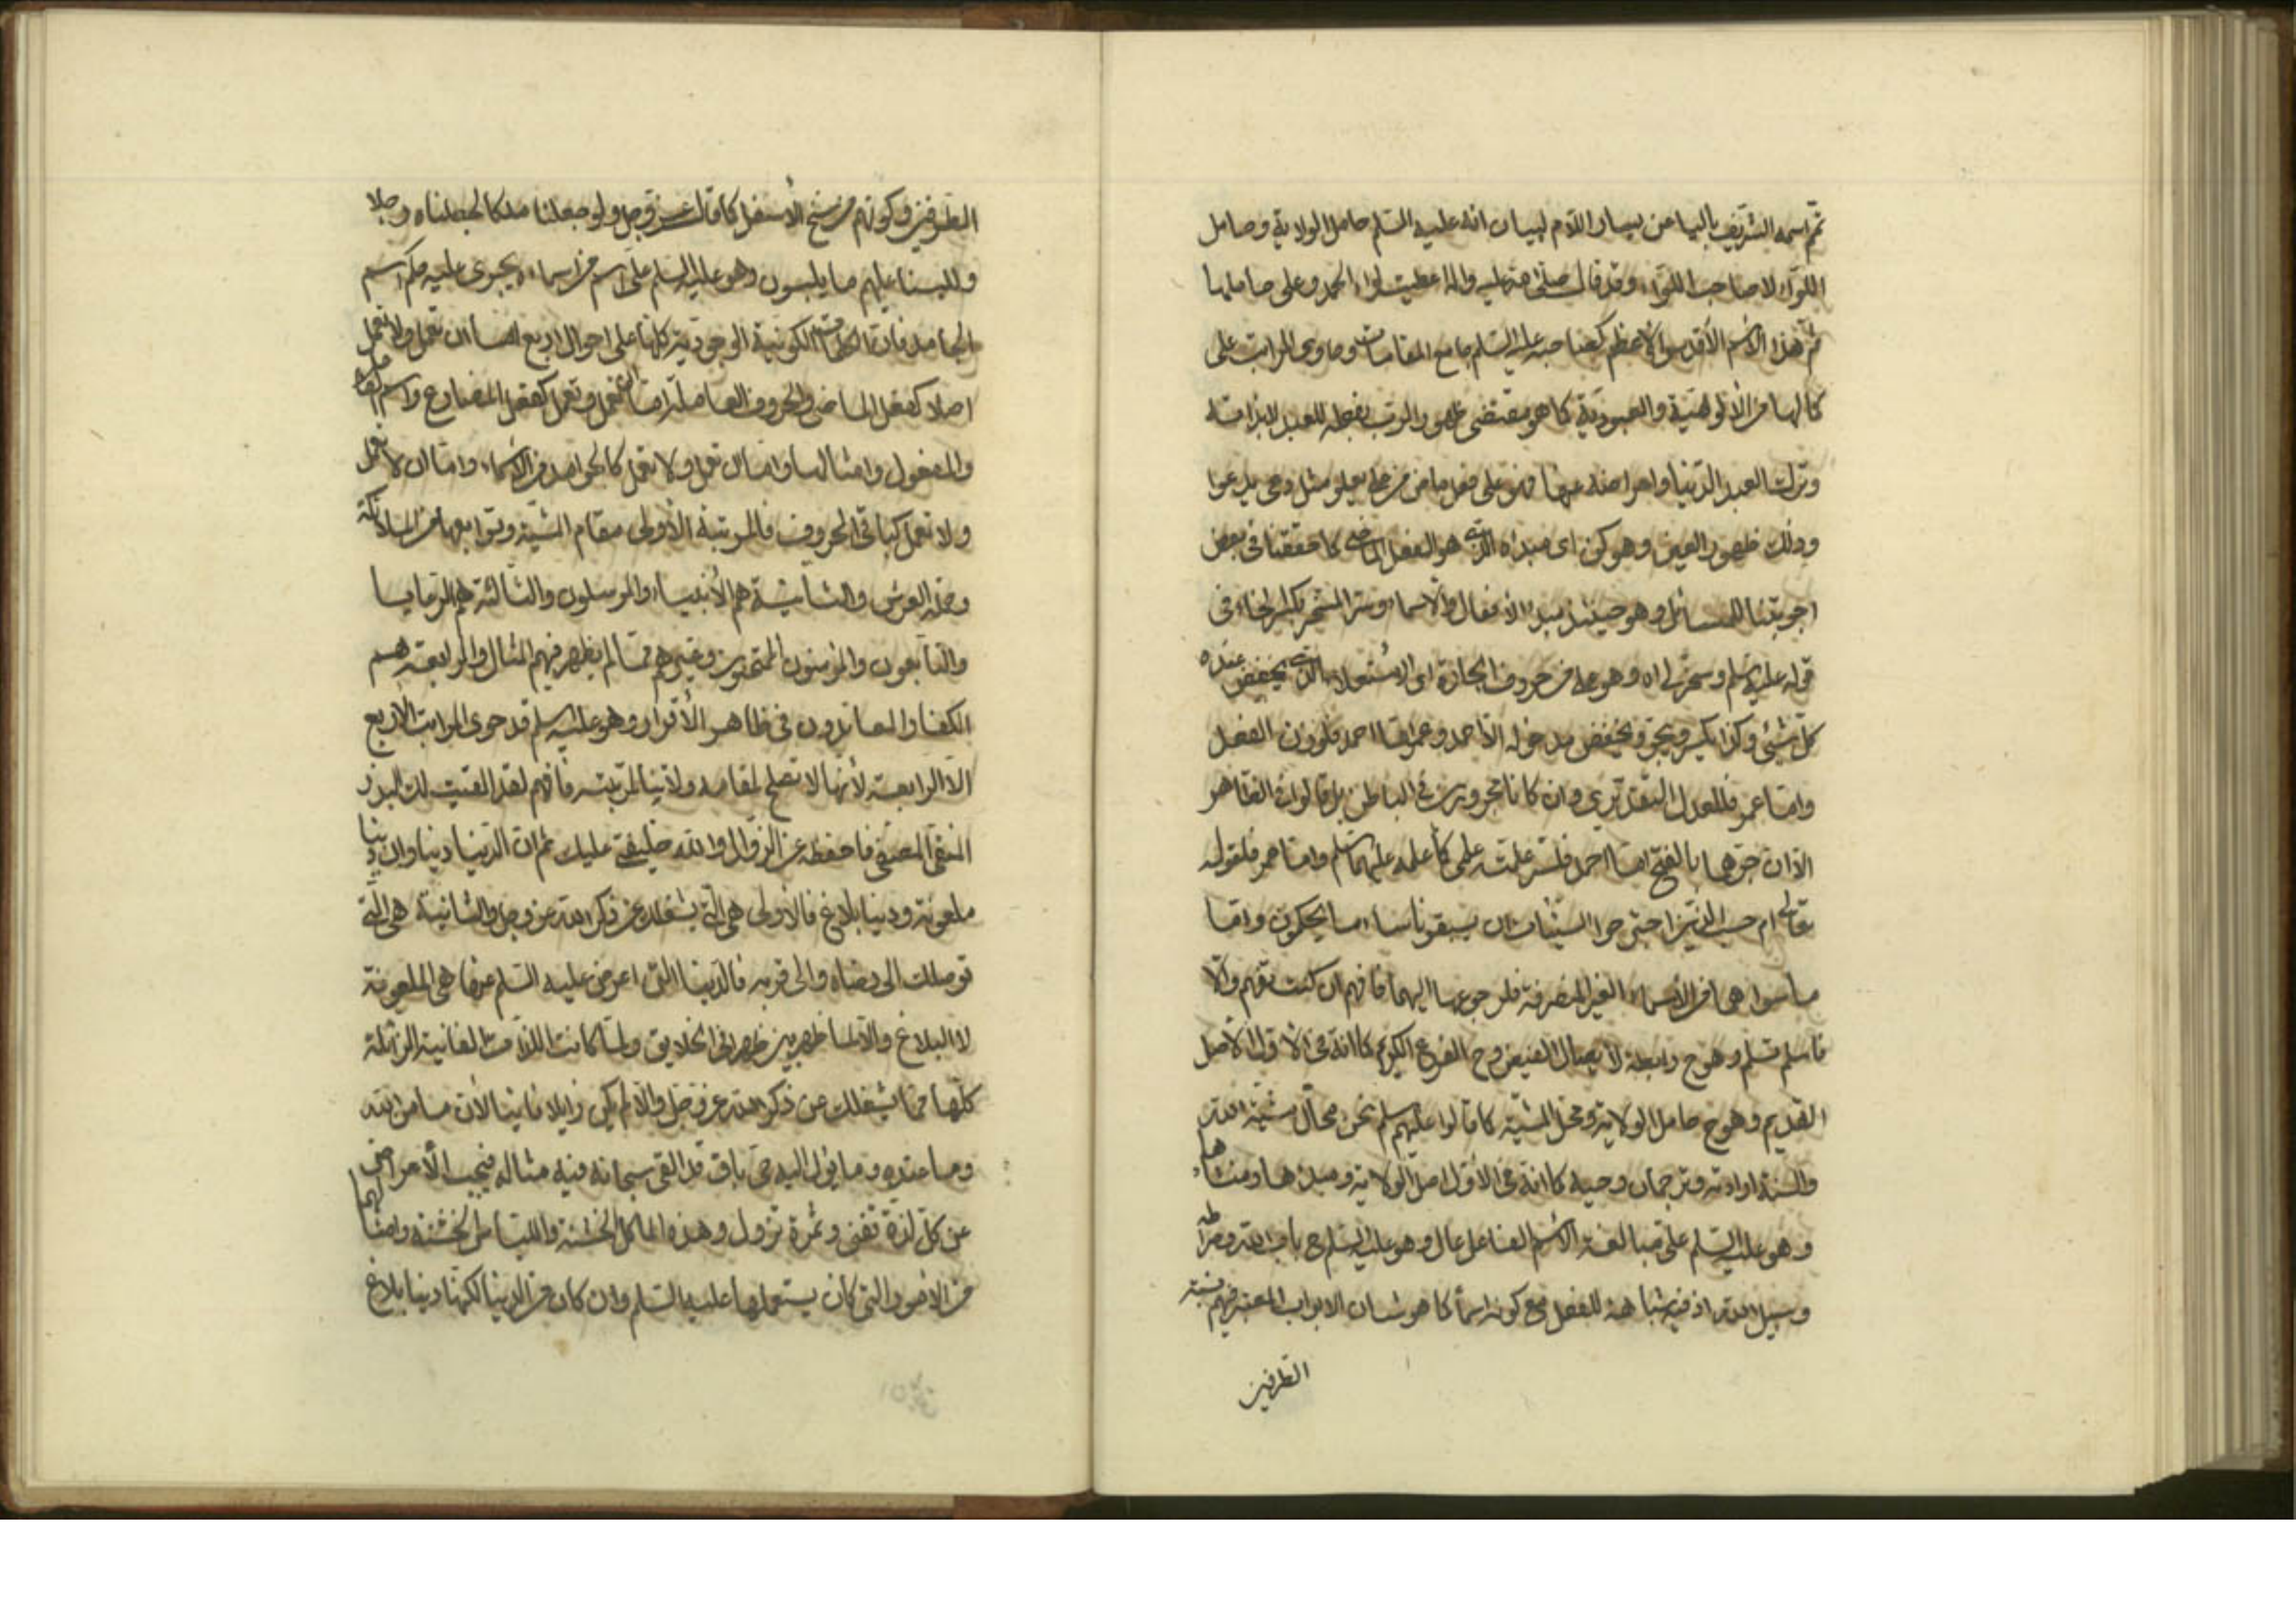 ثم اسمه الشريف بالياء عن يسار واللام لبيان انه عليه السلم حامل الولاية وحامل
اللواء لا صاحب اللواء وقد قال صلى الله عليه واله اعطيت لواء الحمد وعلى حاملها
ثم هذا الاسم الأقدس الأعظم كصاحبه عليه السلم جامع المقامات وحاوى المراتب على
كمالها من الألوهية والعبودية كما هو مقتضى ظهور الرب بفعله للعبد لا بذاته
وترك العبد الدنيا واعراضه عنها فهو على فعل ماض من علا يعلو مثل دعى يدعوا
وذلك ظهور العين وهو كن اى مبدأه الذى هو الفعل الماضى كما حققنا فى بعض
اجوبتنا للمسائل وهو حينئذ مبدء الأفعال والأسماء وستر السحر بكسر الخاء فى
قوله عليه السلم وسخر لى اه وهو على من حروف الجارة اى الاستعلاء الذى يخفض عنده
كل شئى وكذا يكسر ويجر ويخفض مدخوله الأحمد وعمر اما احمد فلوزن الفعل
واما عمر فللعدل التقديرى وان كانا مجرورين فى الباطن بل قالوا فى الظاهر
الا ان جرهما بالفتح اما احمد فلستر علته على كما علمه عليهما السلم واما عمر فلقوله
تعالى ام حسب الذين اجترحوا السيئات ان يسبقونا ساء ما يحكمون واما
ما سواهما من الأسماء الغير المنصرفة فلرجوعها اليهما فافهم ان كنت تفهم والا
فاسلم تسلم وهو ح رابطة لايصال الفيض وح الفرع الكريم كما انه فى الأول الأصل
القديم وهو ح حامل الولاية ومحل المشية كما قالوا عليهم السلم نحن محال مشية الله
والسنة ارادته وترجمان وحيه كما انه فى الأول اصل الولاية ومبدءها ومنشاءها
وهو عليه السلم على مبالغة الاسم الفاعل عال وهو عليه السلم ح باب الله وصراطه
وسبيل الله اذ فيه شباهة للفعل مع كونه اسماً كما هو شان الابواب المعتبر فيهم نسبة
الطرفين
الطرفين وكونهم من سنخ الأسفل كما قال عز وجل ولو جعلنا ملكا لجعلناه رجلا
وللبسنا عليهم ما يلبسون وهو عليه السلم على اسم من اسماء يجرى عليه حكم اسم
الجامد فان الكلمات الكونية الوجودية كلها على احوال اربع اما ان تعمل ولا تعمل
اصلا كفعل الماضى والحروف العاملة واما ان تعمل وتعمل كفعل المضارع واسم الفاعل
والمفعول وامثالها واما ان تعمل ولا تعمل كالجوامد من الأسماء واما ان لا تعمل
ولا تعمل كباقى الحروف فالمرتبة الأولى مقام المشية وتوابعها من الملائكة
وحملة العرش والثانية هم الأنبياء والمرسلون والثالثة هم الرعايا
والتابعون والمؤمنون الممتحنون وغيرهم مما لم يظهر فيهم المثال والرابعة هم
الكفار المعاندون فى ظاهر الأقرار وهو عليه السلم قد حوى المراتب الأربع
الا الرابعة لأنها لا تصلح لمقامه ولا تينا لمرتبته فافهم لقد القيت لك البذر
المنقى المصفى فاحفظه عن الزوال والله خليفتى عليك ثم ان الدنيا دنياوان دنيا
ملعونة ودنيا بلاغ فالأولى هى التى يشغلك عن ذكر الله عز وجل والثانية هى التى
توصلك الى رضاه والى قربه فالدنيا التى اعرض عليه السلم عنها هى الملعونة
لا البلاغ والا لما ظهر بين ظهرانى الخلايق ولما كانت اللذات الفانية الزائلة
كلها مما يشغلك عن ذكر الله عز وجل والا لم يكن زايلا فانيا لأن ما من الله
وما عنده وما يؤل اليه حى باق قد القى سبحانه فيه مثاله فيجب الأعراض
عن كل لذة تفنى وثمرة تزول وهذه المأكل الخشنة واللباس الخشنة وامثالهما
من الامور التى كان يستعملها عليه السلم وان كان من الدنيا لكنها دنيا بلاغ